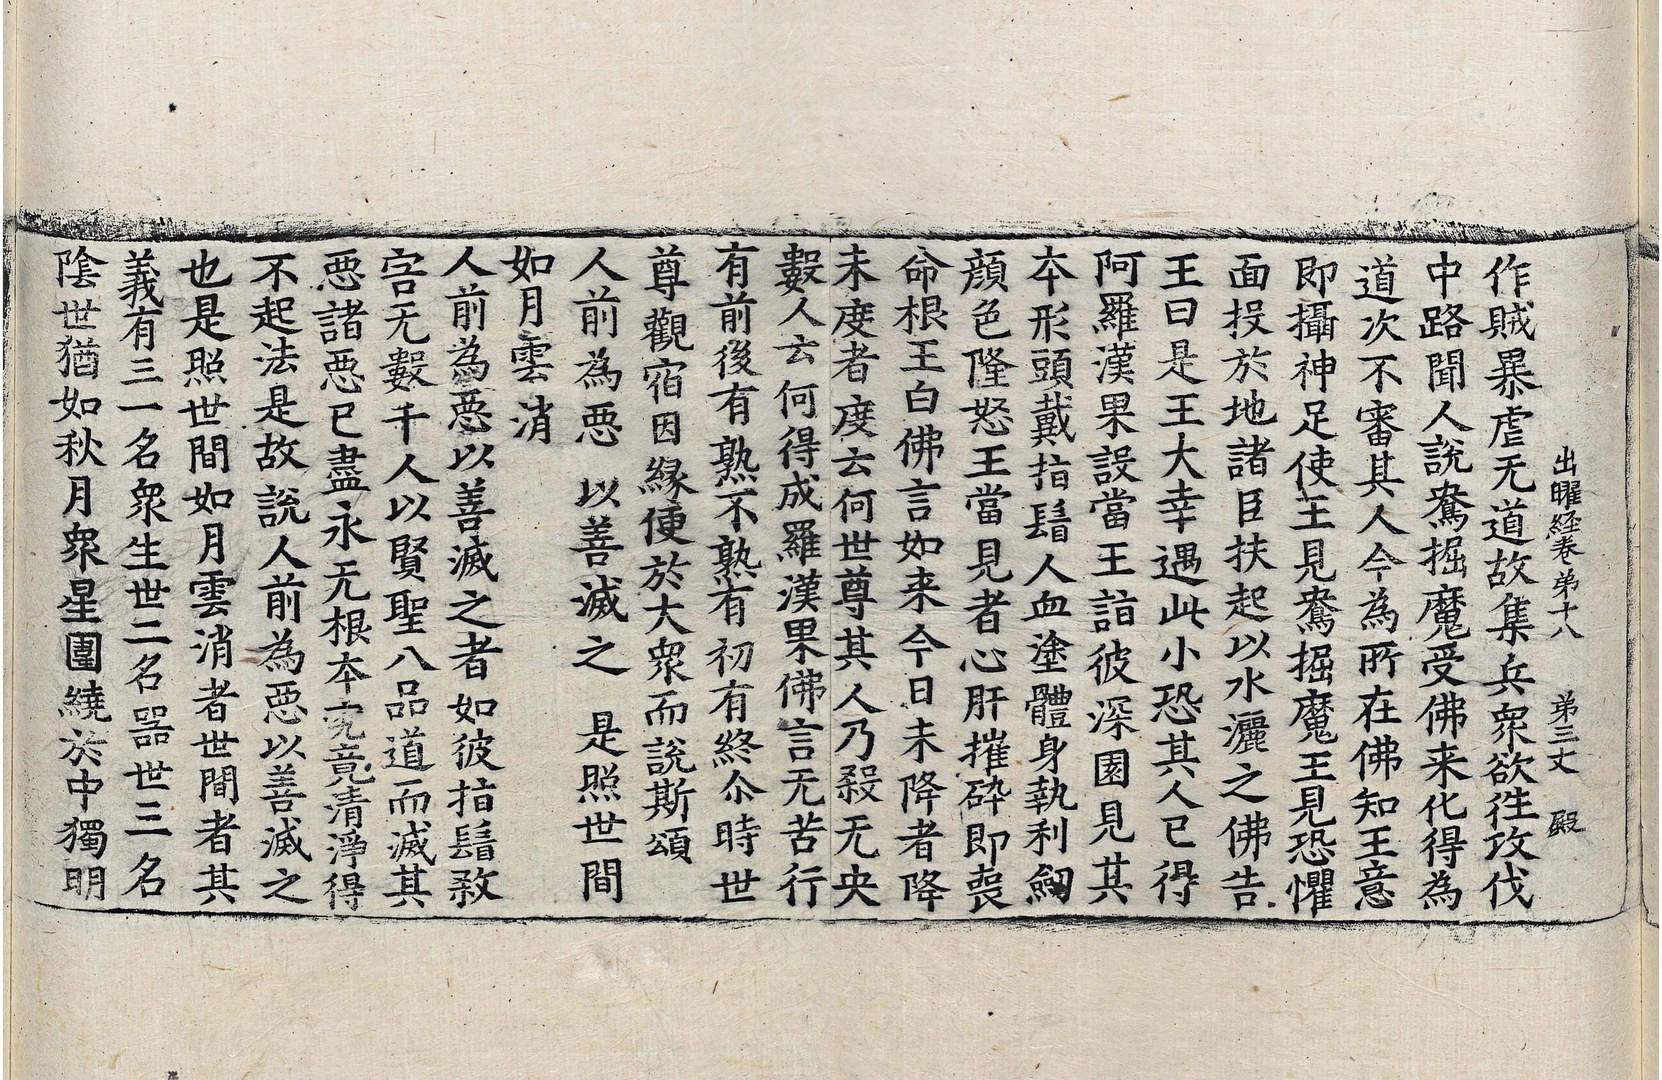 出曜経卷苐十八 苐三丈 殿
作賊暴虐无道故集兵衆欲往攻伐
中路聞人說鴦掘魔受佛来化得為
道次不審其人今為所在佛知王意
即攝神足使王見鴦掘魔王見恐懼
面投於地諸臣扶起以水灑之佛告
王曰是王大幸遇此小恐其人已得
阿羅漢果設當王詣彼深園見其
夲形頭戴指鬘人血塗體身執利劒
顔色隆怒王當見者心肝摧碎即喪
命根王白佛言如来今日未降者降
未度者度云何世尊其人乃殺无央
數人云何得成羅漢果佛言无苦行
有前後有熟不熟有初有終尒時世
尊觀宿因縁便於大衆而說斯頌
人前為惡 以善滅之 是照世間
如月雲消
人前為惡以善滅之者如彼指鬘煞
害无數千人以賢聖八品道而滅其
惡諸惡已盡永无根本究竟清淨得
不起法是故說人前為惡以善滅之
也是照世間如月雲消者世間者其
義有三一名衆生世二名器世三名
陰世猶如秋月衆星圍繞於中獨明